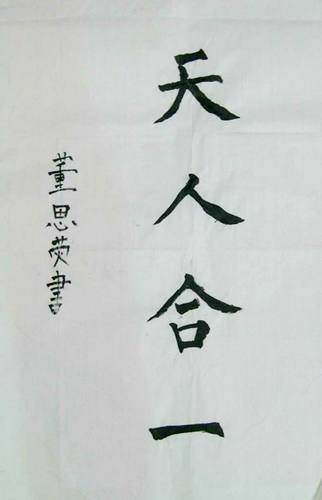 天人合一
董思荧書